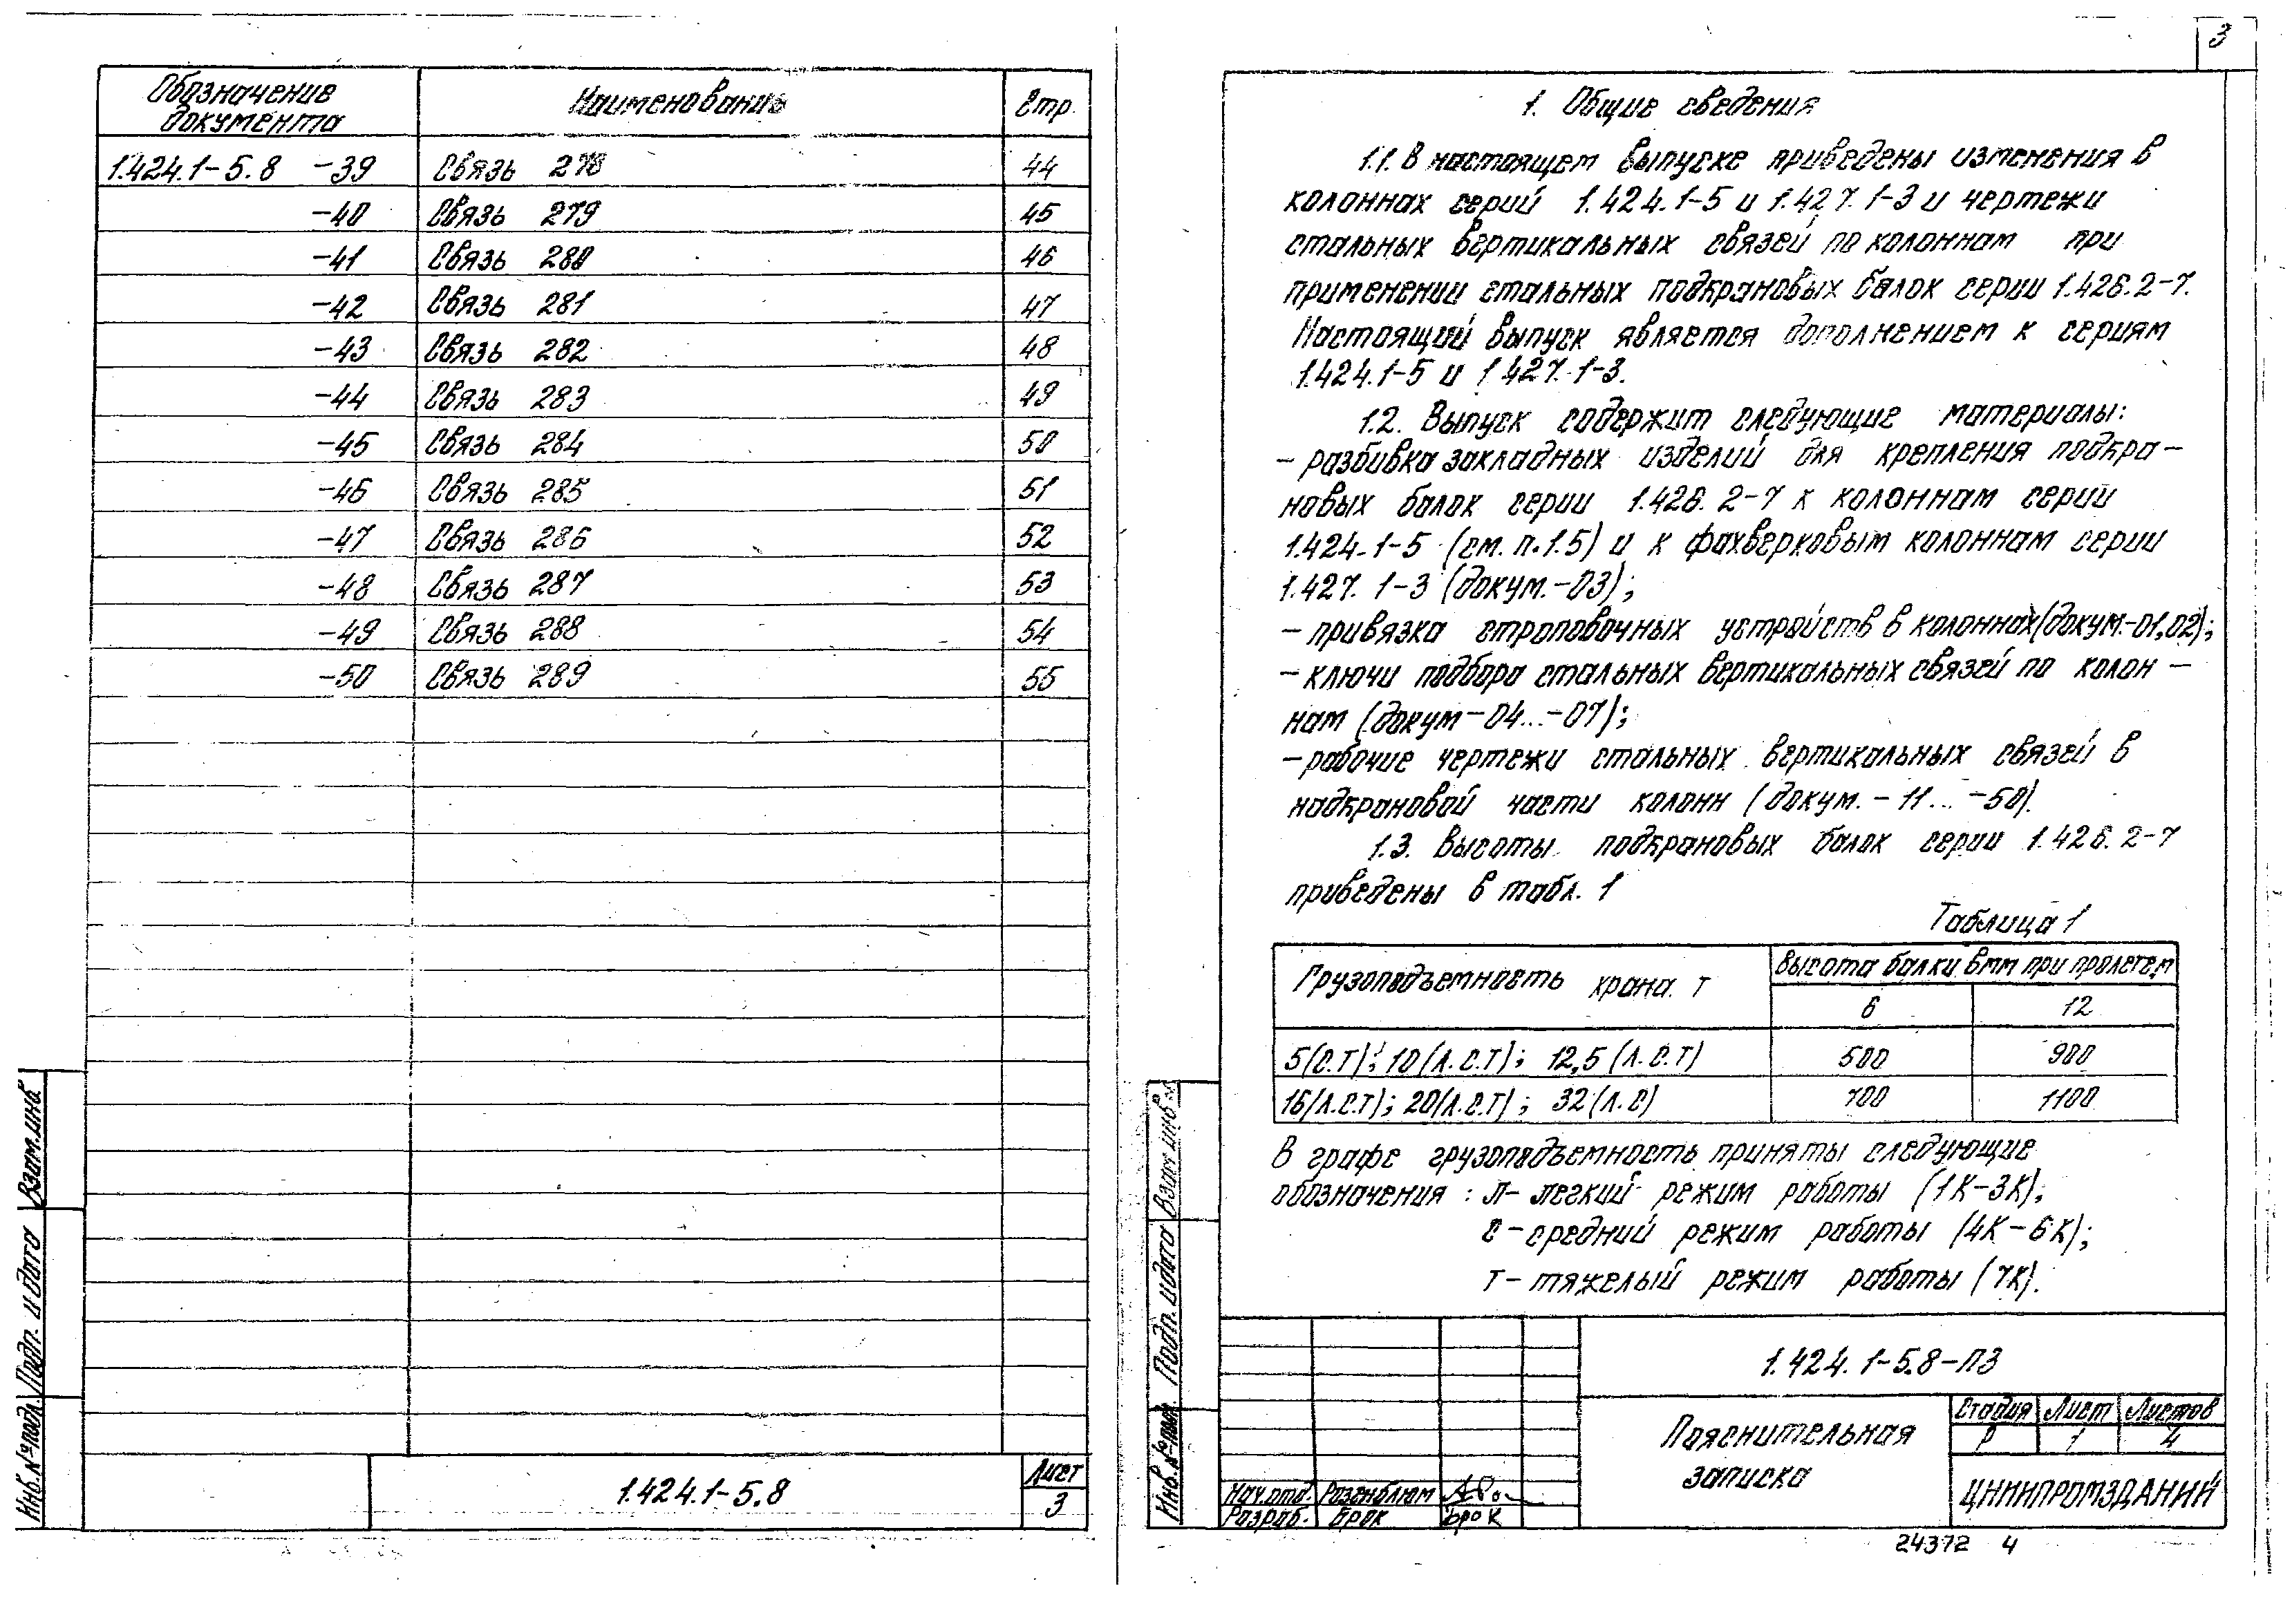 Обозначение документа Наименование Стр.
1.424.1-5.8 -39 Связь 278 44
-40 Связь 279 45
-41 Связь 280 46
-42 Связь 281 47
-43 Связь 282 48
-44 Связь 283 49
-45 Связь 284 50
-46 Связь 285 51
-47 Связь 286 52
-48 Связь 287 53
-49 Связь 288 54
-50 Связь 289 55
Взам.инв
Подп. и дата
Инв.№подл.
1.424.1-5.8
Лист
3
3
1. Общие сведения
1.1. В настоящем выпуске приведены изменения в
колоннах серий 1.424.1-5 и 1.427.1-3 и чертежи
стальных вертикальных связей по колоннам при
применении стальных подкрановых балок серии 1.426.2-7.
Настоящий выпуск является дополнением к сериям
1.424.1-5 и 1.427.1-3.
1.2. Выпуск содержит следующие материалы:
- разбивка закладных изделий для крепления подкра-
новых балок серии 1.426.2-7 к колоннам серии
1.424.1-5 (см. п.1.5) и к фахверковым колоннам серии
1.427.1-3 (докум.-03);
- привязка строповочных устройств в колоннах (докум.-01,02);
- ключи подбора стальных вертикальных связей по колон-
нам (докум-04...-07);
- рабочие чертежи стальных вертикальных связей в
надкрановой части колонн (докум. -11... -50).
1.3. Высоты подкрановых балок серии 1.426.2-7
приведены в табл. 1
Таблица 1
Грузоподъемность крана. т Высота балки в мм при пролете, м
6 12
5(С.Т); 10(Л.С.Т); 12,5(Л.С.Т) 500 900
16(Л.С.Т); 20(Л.С.Т); 32(Л.С) 700 1100
В графе грузоподъемность приняты следующие
обозначения: Л- легкий режим работы (1К-3К);
С- средний режим работы (4К-6К);
Т- тяжелый режим работы (7К).
Взам инв
Подп. и дата
Инв.№подл.
1.424.1-5.8-ПЗ
Пояснительная
записка
Стадия Лист Листов
Р 1 4
ЦНИИПРОМЗДАНИЙ
Нач.отд. Розенблюм
Разраб. Брок Брок
24372 4